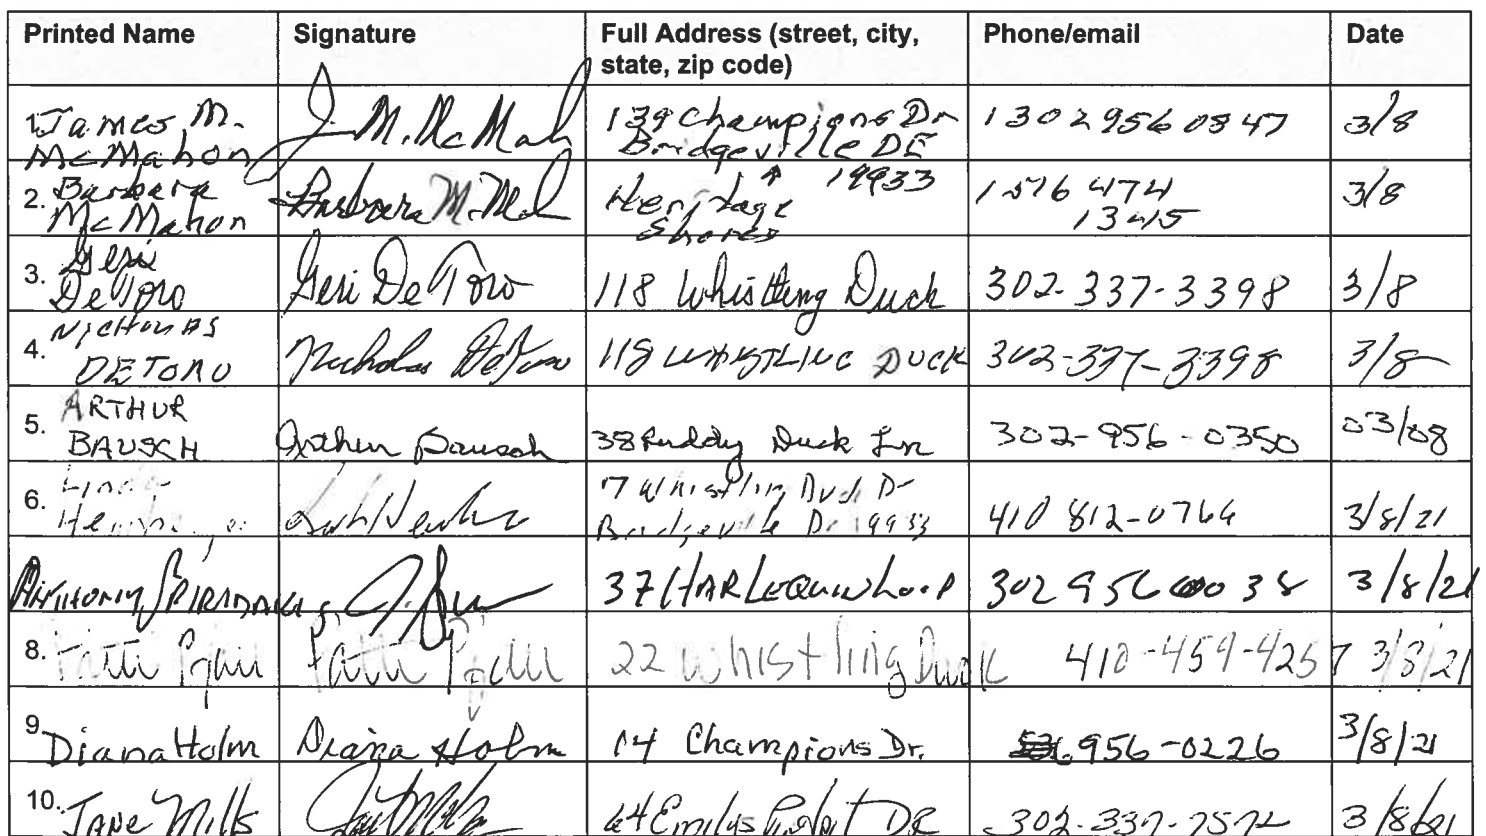 Printed Name Signature Full Address (street, city, state, zip code) Phone/email Date
1. James M. McMahon J. M. McMah 139 Champions Dr Bridgeville DE 19933 1302 956 0847 3/8
2. Barbara McMahon Barbara M. McMah Heritage Shores 1516 474 1345 3/8
3. Geri DeToro Geri De Toro 118 Whistling Duck 302-337-3398 3/8
4. Nicholas DETORO Nicholas DeToro 118 WHISTLING DUCK 302-337-3398 3/8
5. ARTHUR BAUSCH Arthur Bausch 38 Ruddy Duck Ln 302-956-0350 03/08
6. 17 Whistling Duck Dr Bridgeville De 19933 410 812-0764 3/8/21
ANTHONY 37 HARLEQUIN LOOP 302 956 0038 3/8/21
8. Patti Patti 22 Whistling Duck 410-459-4257 3/8/21
9. Diana Holm Diana Holm 14 Champions Dr. 956-0226 3/8/21
10. JANE Mills 64 Emilys Dr 302-337-7572 3/8/21